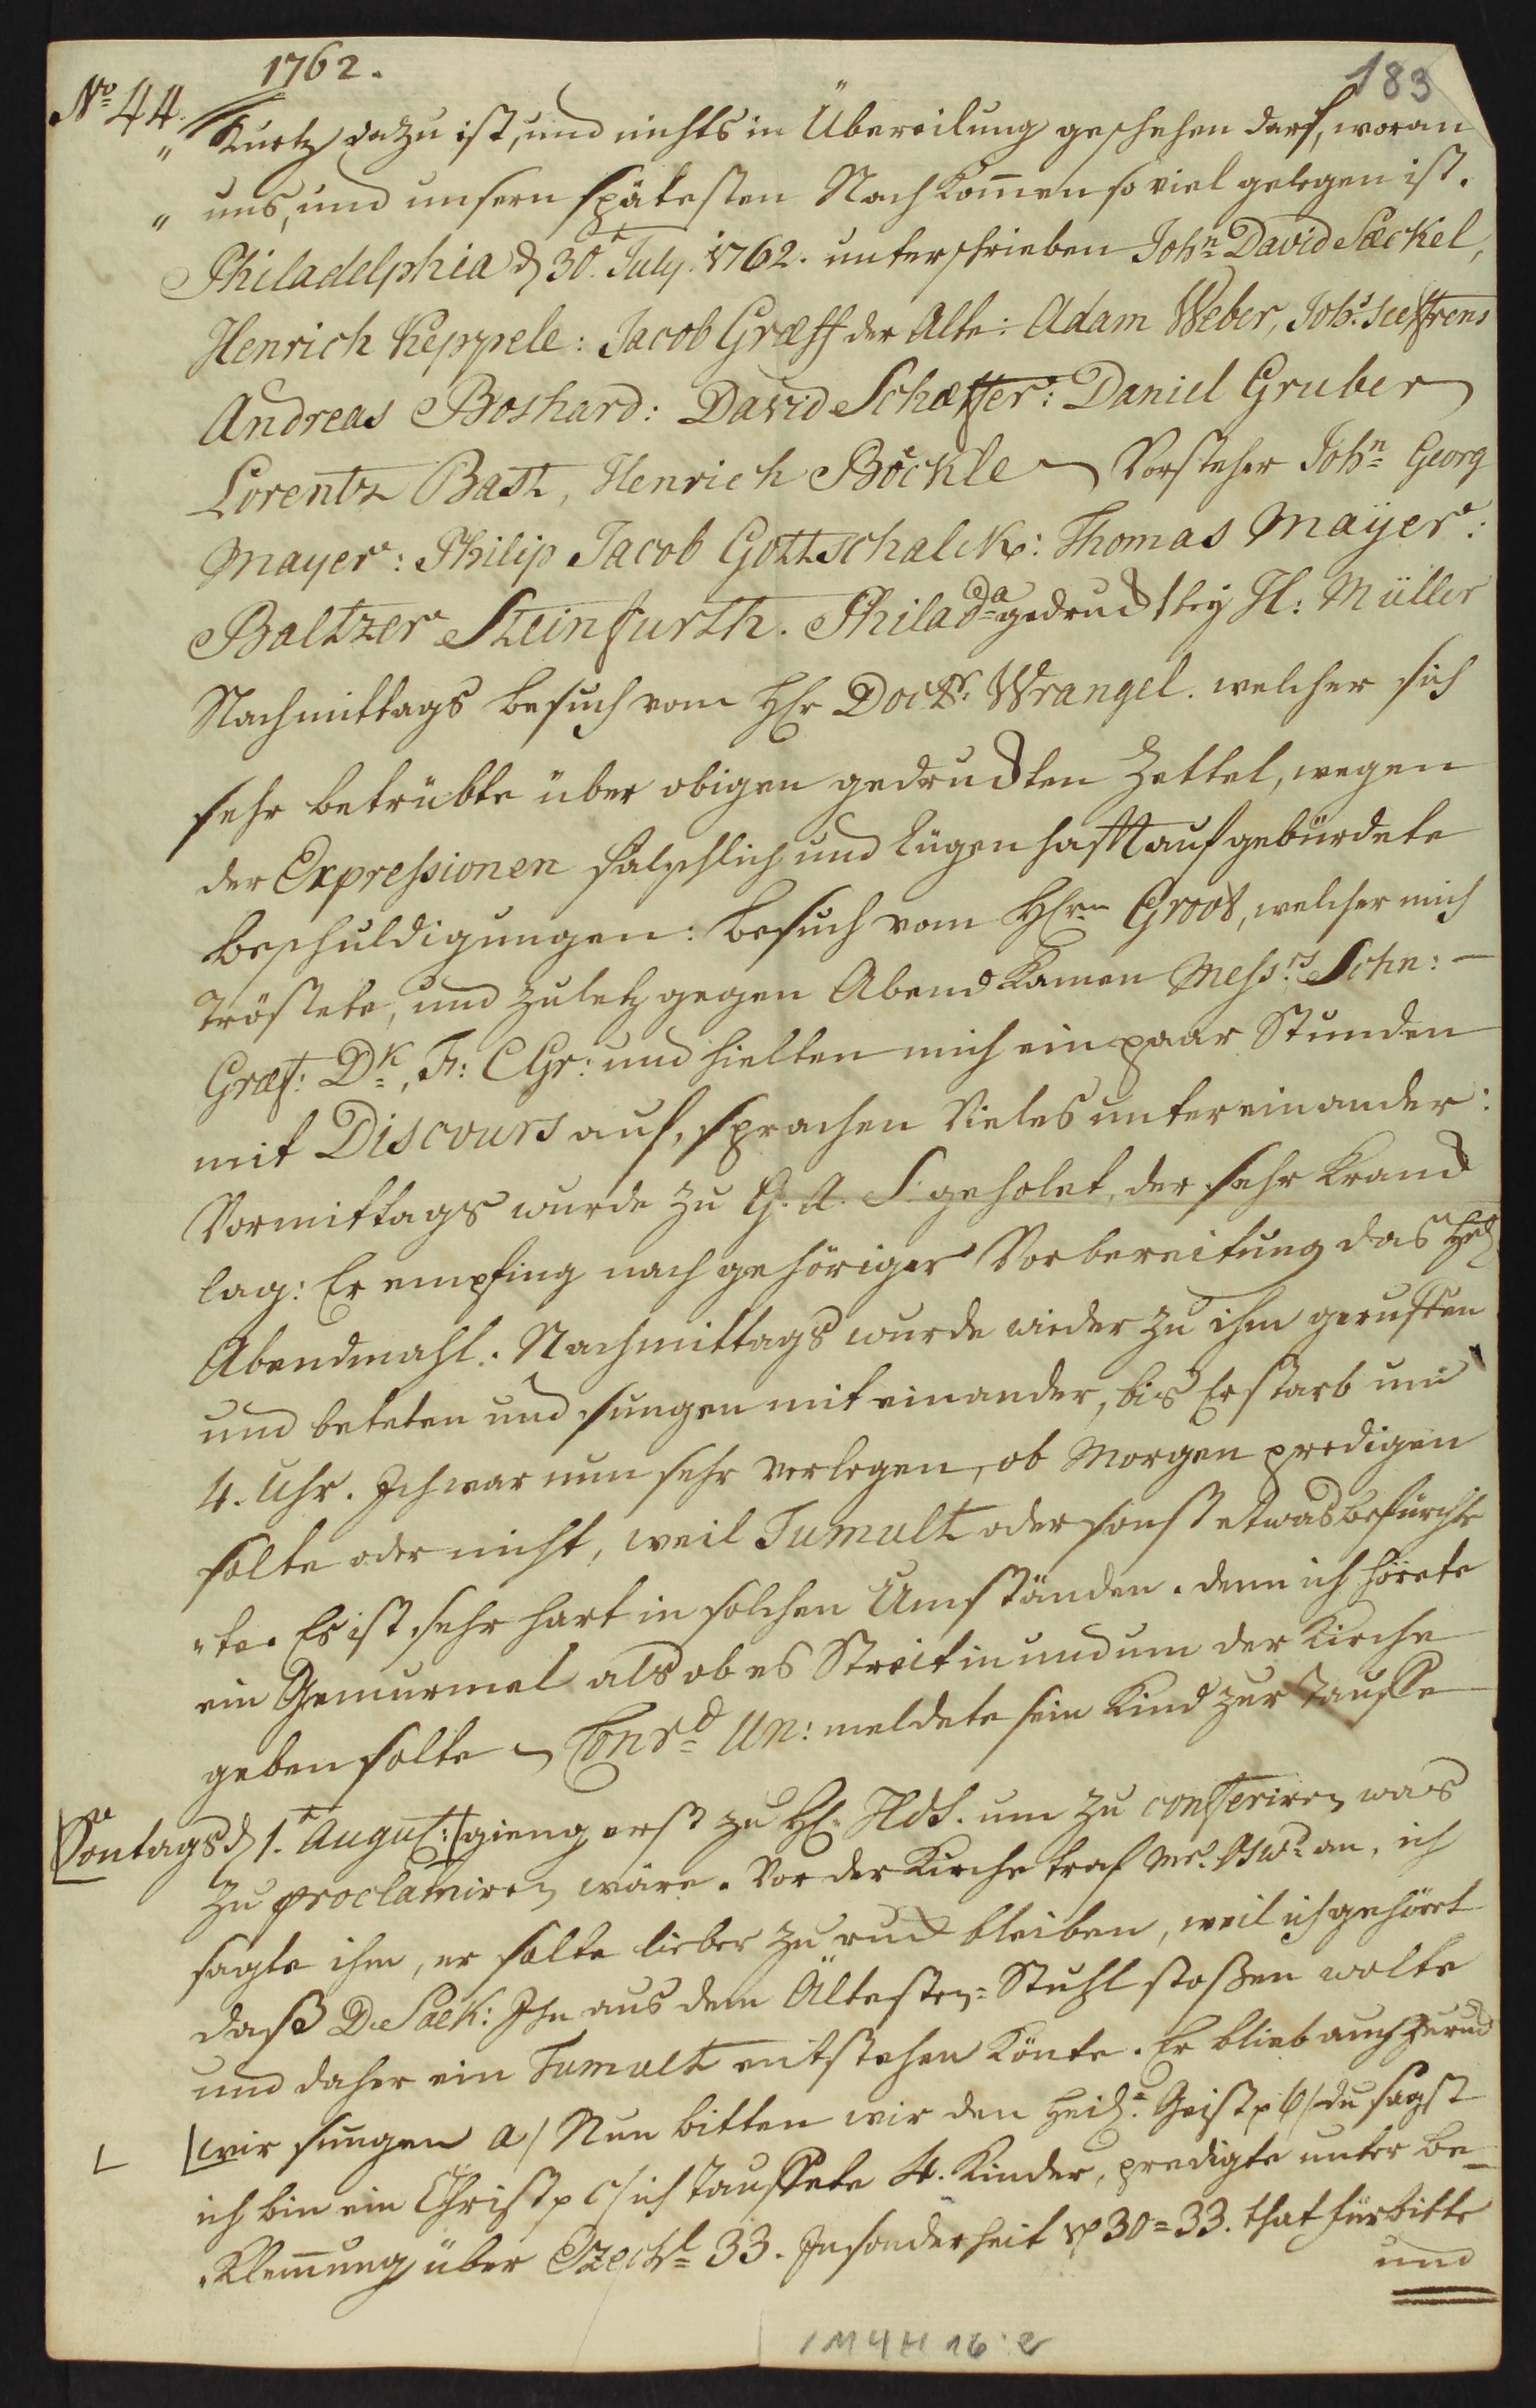 1762.
183
No 44.
" Kurtz dazu ist, und nichts in Übereilung geschehen darf, woran
" uns, und unsern spätesten Nachkom̄en so viel gelegen ist.
Philadelphia d 30.t July. 1762. unterschrieben John David Sæckel,
Henrich Keppele: Jacob Græff der Alte: Adam Weber, Johs. Seeffrens
Andreas Boshard: David Schæffer: Daniel Gruber
Lorentz Bast, Henrich Böckle Vorsteher John Georg
Mayer: Philip Jacob Gottschalck: Thomas Maÿer:
Baltzer Steinfurth. Philada gedruckt bey H: Müller
Nachmittags besuch vom Hr Doctr. Wrangel. welcher sich
sehr betrübte über obigen gedruckten Zettel, wegen
der Expressionen fälschlich und Lügenhafft aufgebürdete
beschuldigungen: besuch vom Hrn Groot, welcher mich
tröstete, und zuletz gegen Abend kamen Messrs. Schn: –
Græf: Dk, Fr: C Gr: und hielten mich ein paar Stunden
mit Discours auf, sprachen Vieles untereinander:
Vormittags wurde zu G. A. S. geholet, der sehr kranck
lag: Er empfing nach gehöriger Vorbereitung das Heil
Abendmahl. Nachmittags wurde wieder zu ihm geruffen
und beteten und sungen mit einander, bis Er starb um
4. Uhr. Ich war nun sehr verlegen, ob Morgen predigen
solte oder nicht, weil Tumult oder sonst etwas befürchte
"te. Es ist sehr hart in solchen Umständen. denn ich hörete
ein Gemurmel als ob es Streit in und um der Kirche
geben solte Conrd Un: meldete sein Kind zur Tauffe
Sontags d 1.t August: gieng erst zu H. Hds. um zu conferiren was
zu proclamiren wäre. Vor der Kirche traf Mr. an, ich
sagte ihm, er solte lieber zuruck bleiben, weil ich gehört
daß D. Sæk: Ihn aus dem Ältesten=Stuhl stoßen wolte
und daher ein Tumult entstehen könte. Er blieb auch zuruck
wir sungen a/ Nun bitten wir den Heil. Geist p b/ du sagst
ich bin ein Christ p c/ ich tauffete 4. Kinder, predigte unter be-
"klem̄ung über Ezechl 33. Insonderheit vs 30=33. that fürbitte
und
1M4H16:2